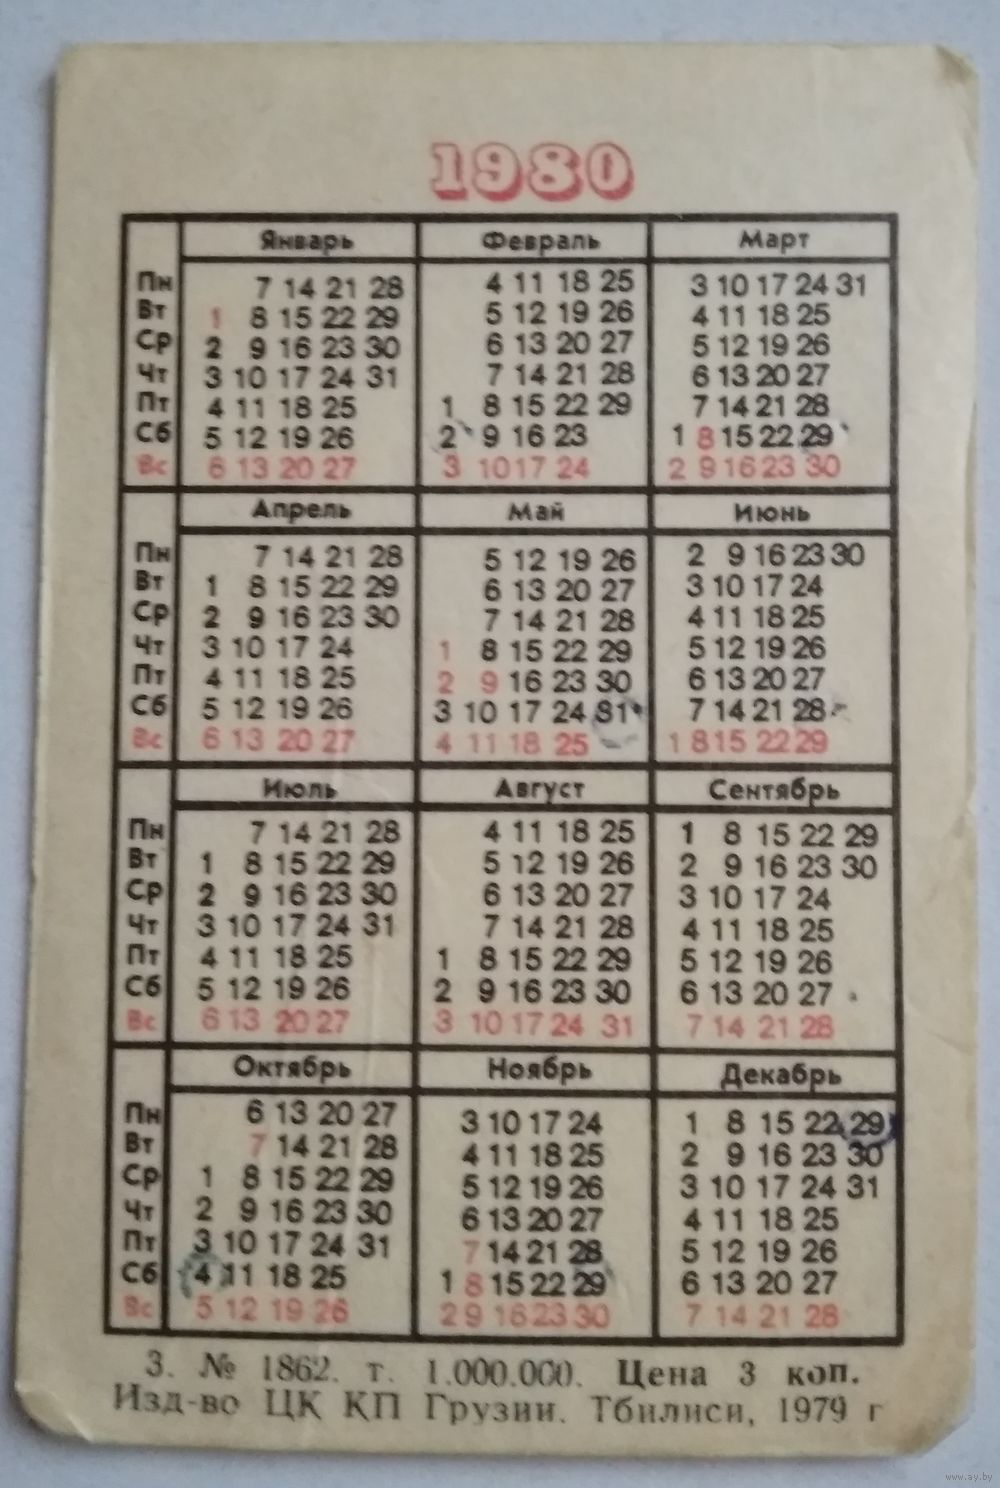 1980
Январь Февраль Март
Пн 7 14 21 28 4 11 18 25 3 10 17 24 31
Вт 1 8 15 22 29 5 12 19 26 4 11 18 25
Ср 2 9 16 23 30 6 13 20 27 5 12 19 26
Чт 3 10 17 24 31 7 14 21 28 6 13 20 27
Пт 4 11 18 25 1 8 15 22 29 7 14 21 28
Сб 5 12 19 26 2 9 16 23 1 8 15 22 29
Вс 6 13 20 27 3 10 17 24 2 9 16 23 30
Апрель Май Июнь
Пн 7 14 21 28 5 12 19 26 2 9 16 23 30
Вт 1 8 15 22 29 6 13 20 27 3 10 17 24
Ср 2 9 16 23 30 7 14 21 28 4 11 18 25
Чт 3 10 17 24 1 8 15 22 29 5 12 19 26
Пт 4 11 18 25 2 9 16 23 30 6 13 20 27
Сб 5 12 19 26 3 10 17 24 31 7 14 21 28
Вс 6 13 20 27 4 11 18 25 1 8 15 22 29
Июль Август Сентябрь
Пн 7 14 21 28 4 11 18 25 1 8 15 22 29
Вт 1 8 15 22 29 5 12 19 26 2 9 16 23 30
Ср 2 9 16 23 30 6 13 20 27 3 10 17 24
Чт 3 10 17 24 31 7 14 21 28 4 11 18 25
Пт 4 11 18 25 1 8 15 22 29 5 12 19 26
Сб 5 12 19 26 2 9 16 23 30 6 13 20 27
Вс 6 13 20 27 3 10 17 24 31 7 14 21 28
Октябрь Ноябрь Декабрь
Пн 6 13 20 27 3 10 17 24 1 8 15 22 29
Вт 7 14 21 28 4 11 18 25 2 9 16 23 30
Ср 1 8 15 22 29 5 12 19 26 3 10 17 24 31
Чт 2 9 16 23 30 6 13 20 27 4 11 18 25
Пт 3 10 17 24 31 7 14 21 28 5 12 19 26
Сб 4 11 18 25 1 8 15 22 29 6 13 20 27
Вс 5 12 19 26 2 9 16 23 30 7 14 21 28
З. № 1862. т. 1.000.000. Цена 3 коп.
Изд-во ЦК КП Грузии. Тбилиси, 1979 г
www.ay.by